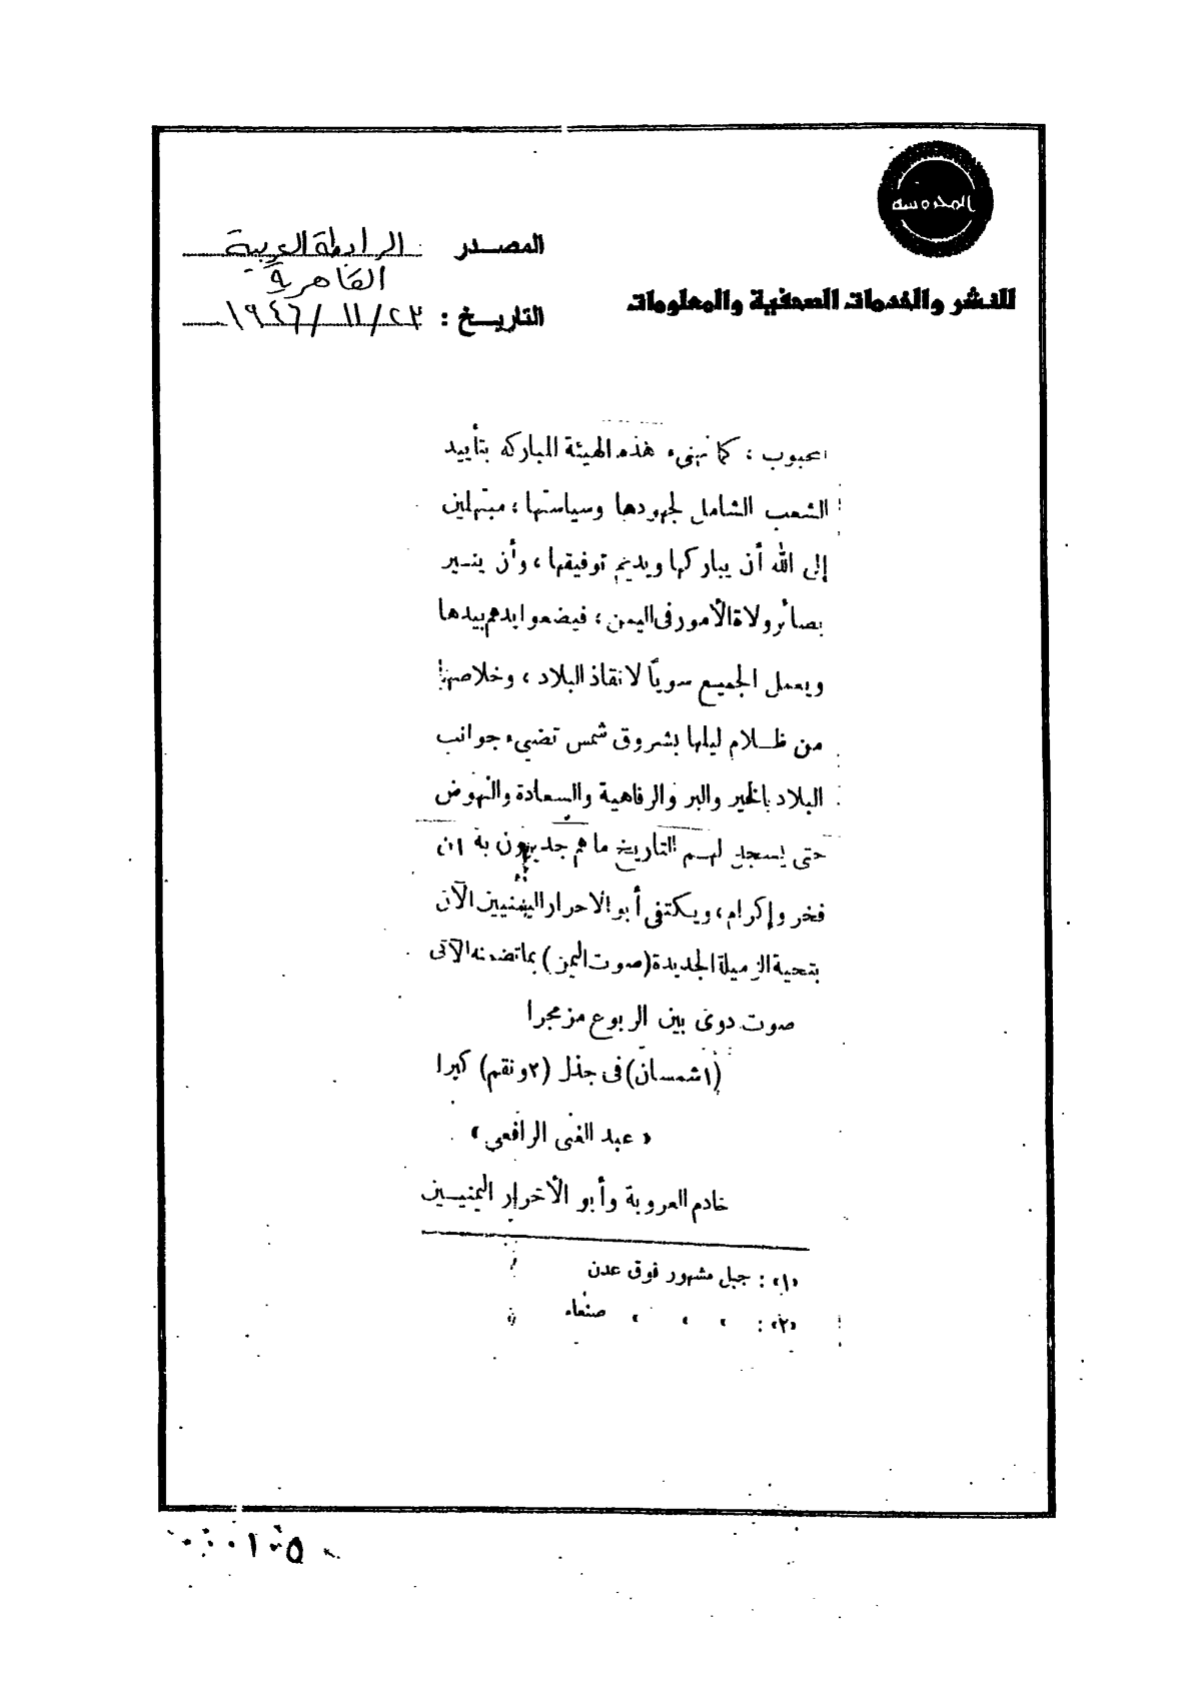 المحروسة
المصدر : الرابطة العربية
القاهرية
للنشر والخدمات الصحفية والمعلومات
التاريخ : ٢٣/١١/١٩٤٦
المحبوب ؛ كما نهنىء هذه الهيئة المباركه بتأييد
الشعب الشامل لجهودها وسياستها ؛ مبتهلين
إلى الله أن يباركها ويديم توفيقها ، وأن ينير
بصائر ولاة الأمور فى اليمن ؛ فيضعوا يدهم بيدها
ويعمل الجميع سويًا لانقاذ البلاد ، وخلاصها
من ظلام ليلها بشروق شمس تضيىء جوانب
البلاد بالخير والبر والرفاهية والسعادة والنهوض
حتى يسجل لهم التاريخ ما هم جديرون به من
فخر وإكرام ، ويكتفى أبو الاحرار اليمنيين الآن
بتحية الزميلة الجديدة (صوت اليمن) بما تضمنه الآتى
صوت دوى بين الربوع مزمجرا
(١ شمسان) فى جذل (٢ ونقم) كبرا
« عبد الغنى الرافعي »
خادم العروبة وأبو الأحرار اليمنيين
«١» : جبل مشهور فوق عدن
«٢» : » » » صنعاء
٠٠١٠٥